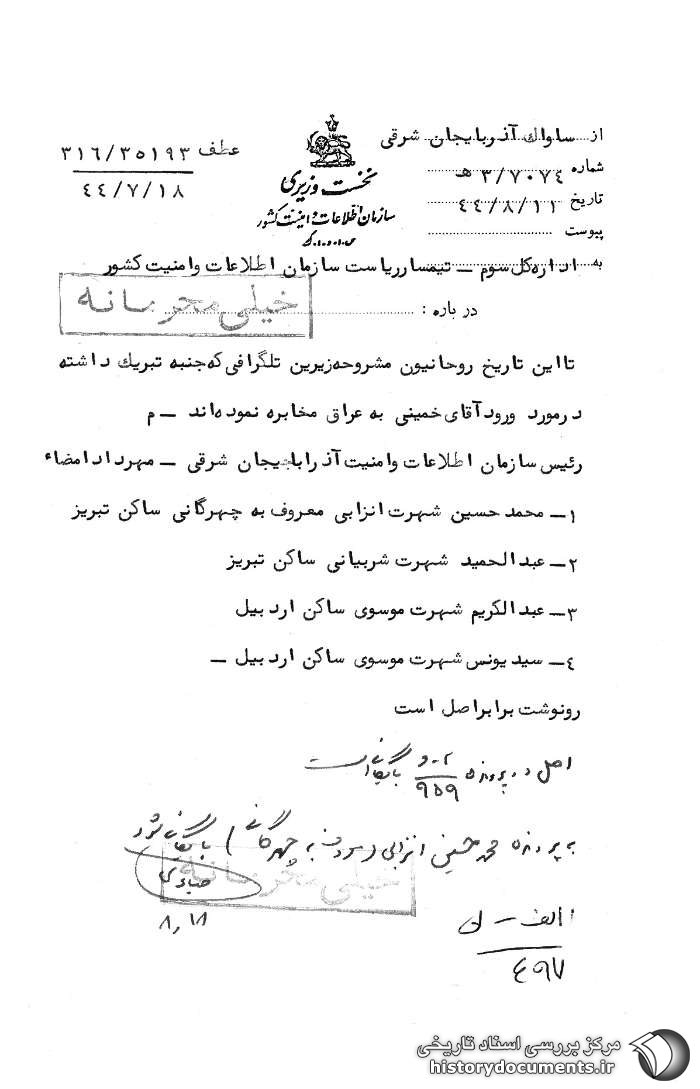 از ساواك آذربايجان شرقی
شماره ۳/۷۰۷٤ هـ
تاریخ ٤٤/۸/۱۱
پیوست
نخست وزیری
سازمان اطلاعات و امنیت کشور
س.ا.و.ا.ک
عطف ۳۱٦/۳۵۱۹۳
٤٤/۷/۱۸
به اداره کل سوم ــ تیمسار ریاست سازمان اطلاعات وامنیت کشور
خیلی محرمانه
در باره :
تا این تاریخ روحانیون مشروحه زیرین تلگرافی که جنبه تبریك داشته
درمورد ورود آقای خمینی به عراق مخابره نموده اند ــ م
رئیس سازمان اطلاعات وامنیت آذربایجان شرقی ــ مهرداد امضاء
۱ــ محمد حسین شهرت انزابی معروف به چهرگانی ساکن تبریز
۲ــ عبدالحمید شهرت شربیانی ساکن تبریز
۳ــ عبدالکریم شهرت موسوی ساکن اردبیل
٤ــ سید یونس شهرت موسوی ساکن اردبیل ــ
رونوشت برابر اصل است
اصل در پرونده بایگانی است
۹۵۹
به پرونده محمد حسین انزابی (معروف به چهرگانی) بایگانی شود
خیلی محرمانه
۸/۱۸
الف ــ
٤۹۷
مرکز بررسی اسناد تاریخی
historydocuments.ir